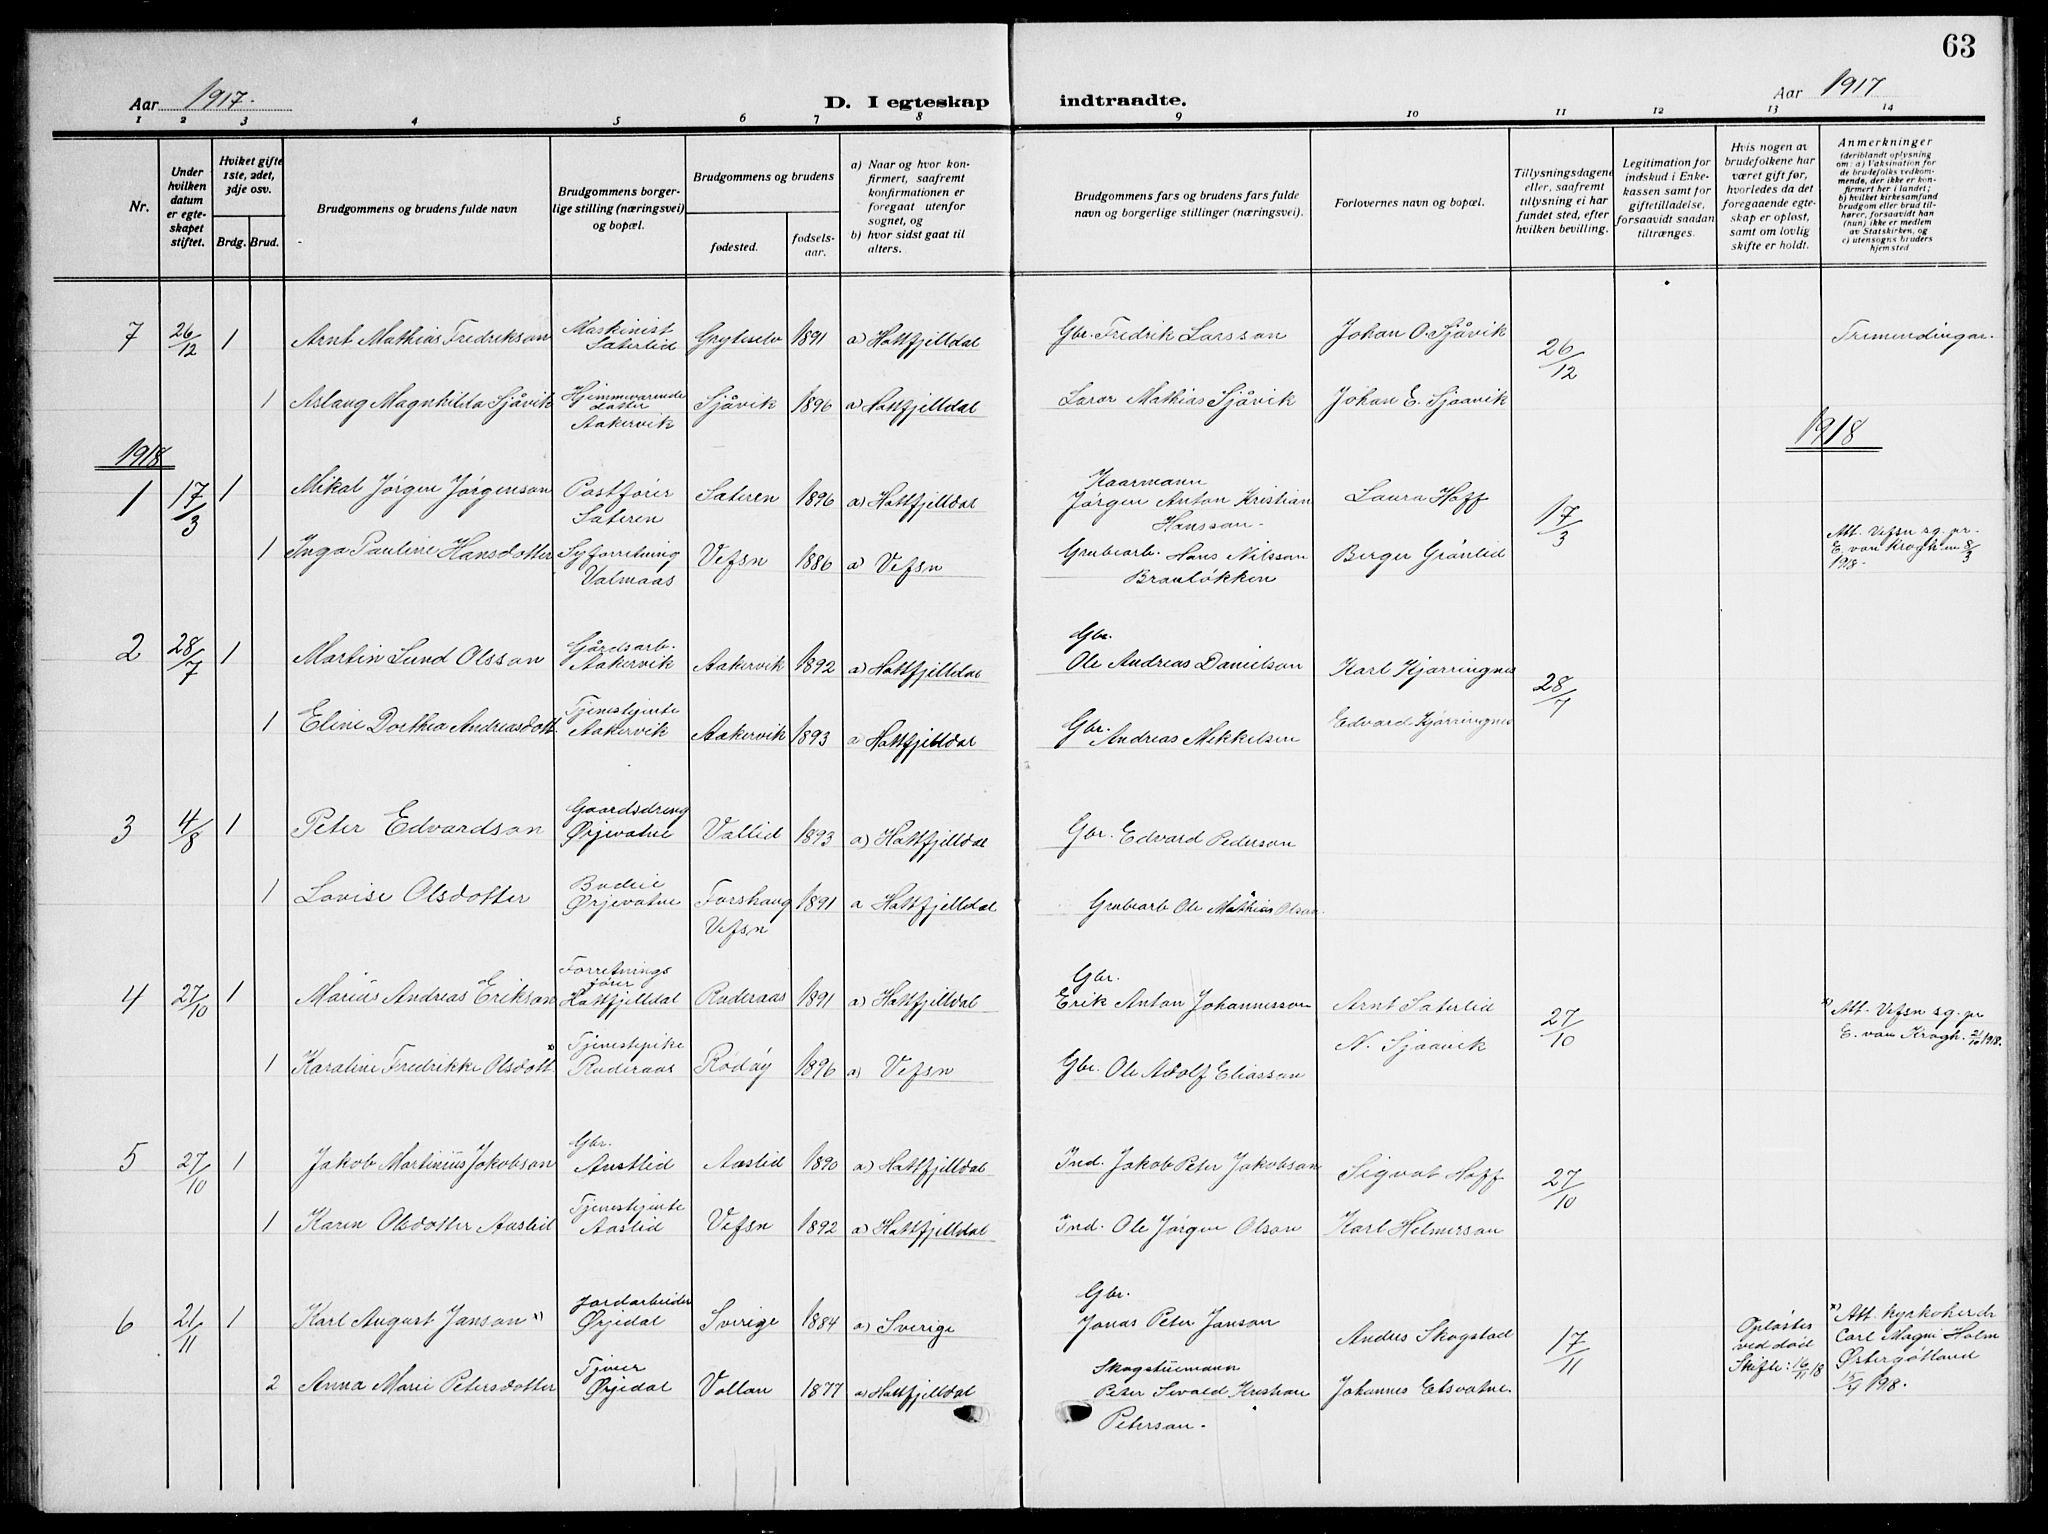 63
Aar 1917.
D. I egteskap indtraadte.
Aar 1917
1 2 3 4 5 6 7 8 9 10 11 12 13 14
Nr.
Under hvilken datum er egteskapet stiftet.
Hvilket gifte 1ste, 2det, 3dje osv.
Brdg. Brud.
Brudgommens og brudens fulde navn
Brudgommens borgerlige stilling (næringsvei) og bopæl.
Brudgommens og brudens
fødested.
fødselsaar.
a) Naar og hvor konfirmert, saafremt konfirmationen er foregaat utenfor sognet, og
b) hvor sidst gaat til alters.
Brudgommens fars og brudens fars fulde navn og borgerlige stillinger (næringsvei).
Forlovernes navn og bopæl.
Tillysningsdagene eller, saafremt tillysning ei har fundet sted, efter hvilken bevilling.
Legitimation for indskud i Enkekassen samt for giftetilladelse, forsaavidt saadan tiltrænges.
Hvis nogen av brudefolkene har været gift før, hvorledes da det foregaaende egteskap er opløst, samt om lovlig skifte er holdt.
Anmerkninger
(deriblandt oplysning om: a) Vaksination for de brudefolks vedkommende, der ikke er konfirmert her i landet; b) hvilket kirkesamfund brudgom eller brud tilhører, forsaavidt han (hun) ikke er medlem av Statskirken, og c) utensogns bruders hjemsted
7 26/12 1 Arnt Mathias Fredrikson Maskinist Saterlid Grytselv 1891 a) Hattfjelldal Gbr. Fredrik Larsson Johan O. Sjåvik 26/12 Tremendingar.
1 Aslaug Magnhilda Sjåvik Hjemmeværende datter Aakervik Sjåvik 1896 a) Hattfjelldal Lærar Mathias Sjåvik Johan E. Sjaavik
1918 1918
1 17/3 1 Mikal Jørgen Jørgenson Postfører Sateren Sateren 1896 a) Hattfjelldal Kaarmann Jørgen Anton Kristian Hansson - Laura Hoff 17/3
1 Inga Pauline Hansdotter Syforretning Valmaas Vefsn 1886 a) Vefsn Grubearb. Hans Nilsson Braulökken Berger Grönlid Att. Vefsn sg. pr. E. van Krogh 8/3 1918.
2 28/7 1 Martin Lund Olsson Gårdsarb. Aakervik Aakervik 1892 a) Hattfjelldal Gbr. Ole Andreas Danielson Karl Kjærringnes 28/7
1 Eline Dorthea Andreasdott. Tjenestejente Aakervik Aakervik 1893 a) Hattfjelldal Gbr. Andreas Mikkelsen Edvard Kjærringnes
3 4/8 1 Peter Edvardson Gaardsdreng Ørjevatne Vallid 1893 a) Hattfjelldal Gbr. Edvard Pederson
1 Lovise Olsdotter Budeie Ørjevatne Forshaug Vefsn 1891 a Hattfjelldal Grubearb Ole Mathias Olson.
4 27/10 1 Marius Andreas Erikson Forretnings fører Hattfjelldal Ruderaas 1891 a) Hattfjelldal Gbr. Erik Anton Johannesson Arnt Saterlid 27/10 x) Att. Vefsn sg. pr E. van Krogh. 21/10 1918.
1 Karaline Fredrikke Olsdott. x) Tjenestepike Ruderaas Rödöy 1896 a) Vefsn Gbr. Ole Adolf Eliasson N. Sjaavik
5 27/10 1 Jakob Martinius Jakobson Gbr. Austlid Aaslid 1890 a) Hattfjelldal Ind. Jakob Peter Jakobson Sigvat Hoff 27/10
1 Karen Olsdotter Aaslid Tjenestejente Aaslid Vefsn 1892 a) Hattfjelldal Ind. Ole Jørgen Olson Karl Helmerson
6 21/11 1 Karl August Janson x) Jordarbeider Ørjedal Sverige 1884 a) Sverige Gbr. Jonas Peter Janson Anders Skogstad 17/11 Opløstes ved død Skifte: 16/11 18 x) Att. kyrkoherde Carl Magn. Holm Østergötland 15/9 1918.
2 Anna Marie Petersdotter Ørjedal Vollan 1877 a) Hattfjelldal Skogstuemann Peter Sivald Kristian Peterson. Johannes Elsvatne.